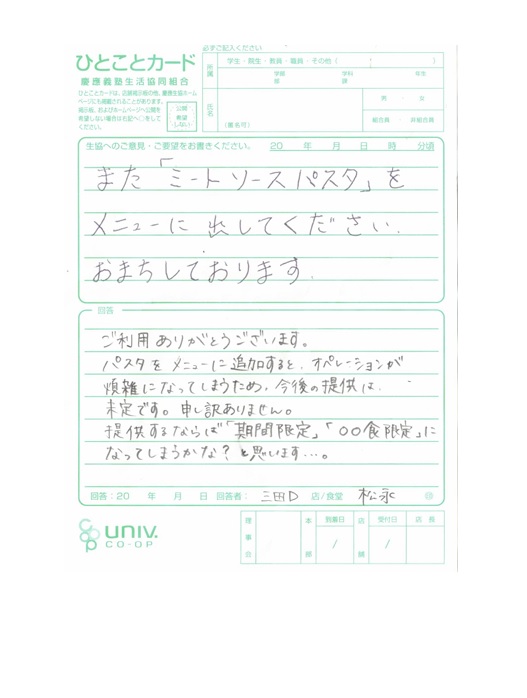 必ずご記入ください
ひとことカード
慶應義塾生活協同組合
ひとことカードは、店頭掲示板の他、慶應生協ホームページにも掲載されることがあります。
掲示板、およびホームページへ公開を希望しない場合は右記へ○をしてください。
公開希望しない
所属
学生・院生・教員・職員・その他( )
学部 学科 年生
部 課
氏名
(匿名可)
男 ・ 女
組合員 ・ 非組合員
生協へのご意見・ご要望をお書きください。 20 年 月 日 時 分頃
また「ミートソースパスタ」を
メニューに出してください.
おまちしております.
回答
ご利用ありがとうございます。
パスタをメニューに追加すると、オペレーションが
煩雑になってしまうため、今後の提供は、
未定です。申し訳ありません。
提供するならば「期間限定」「○○食限定」に
なってしまうかな?と思います…。
回答:20 年 月 日 回答者: 三田D 店/食堂 松永 ㊞
coop UNIV.
CO-OP
理事会
本部
到着日
/
店舗
受付日
/
店長